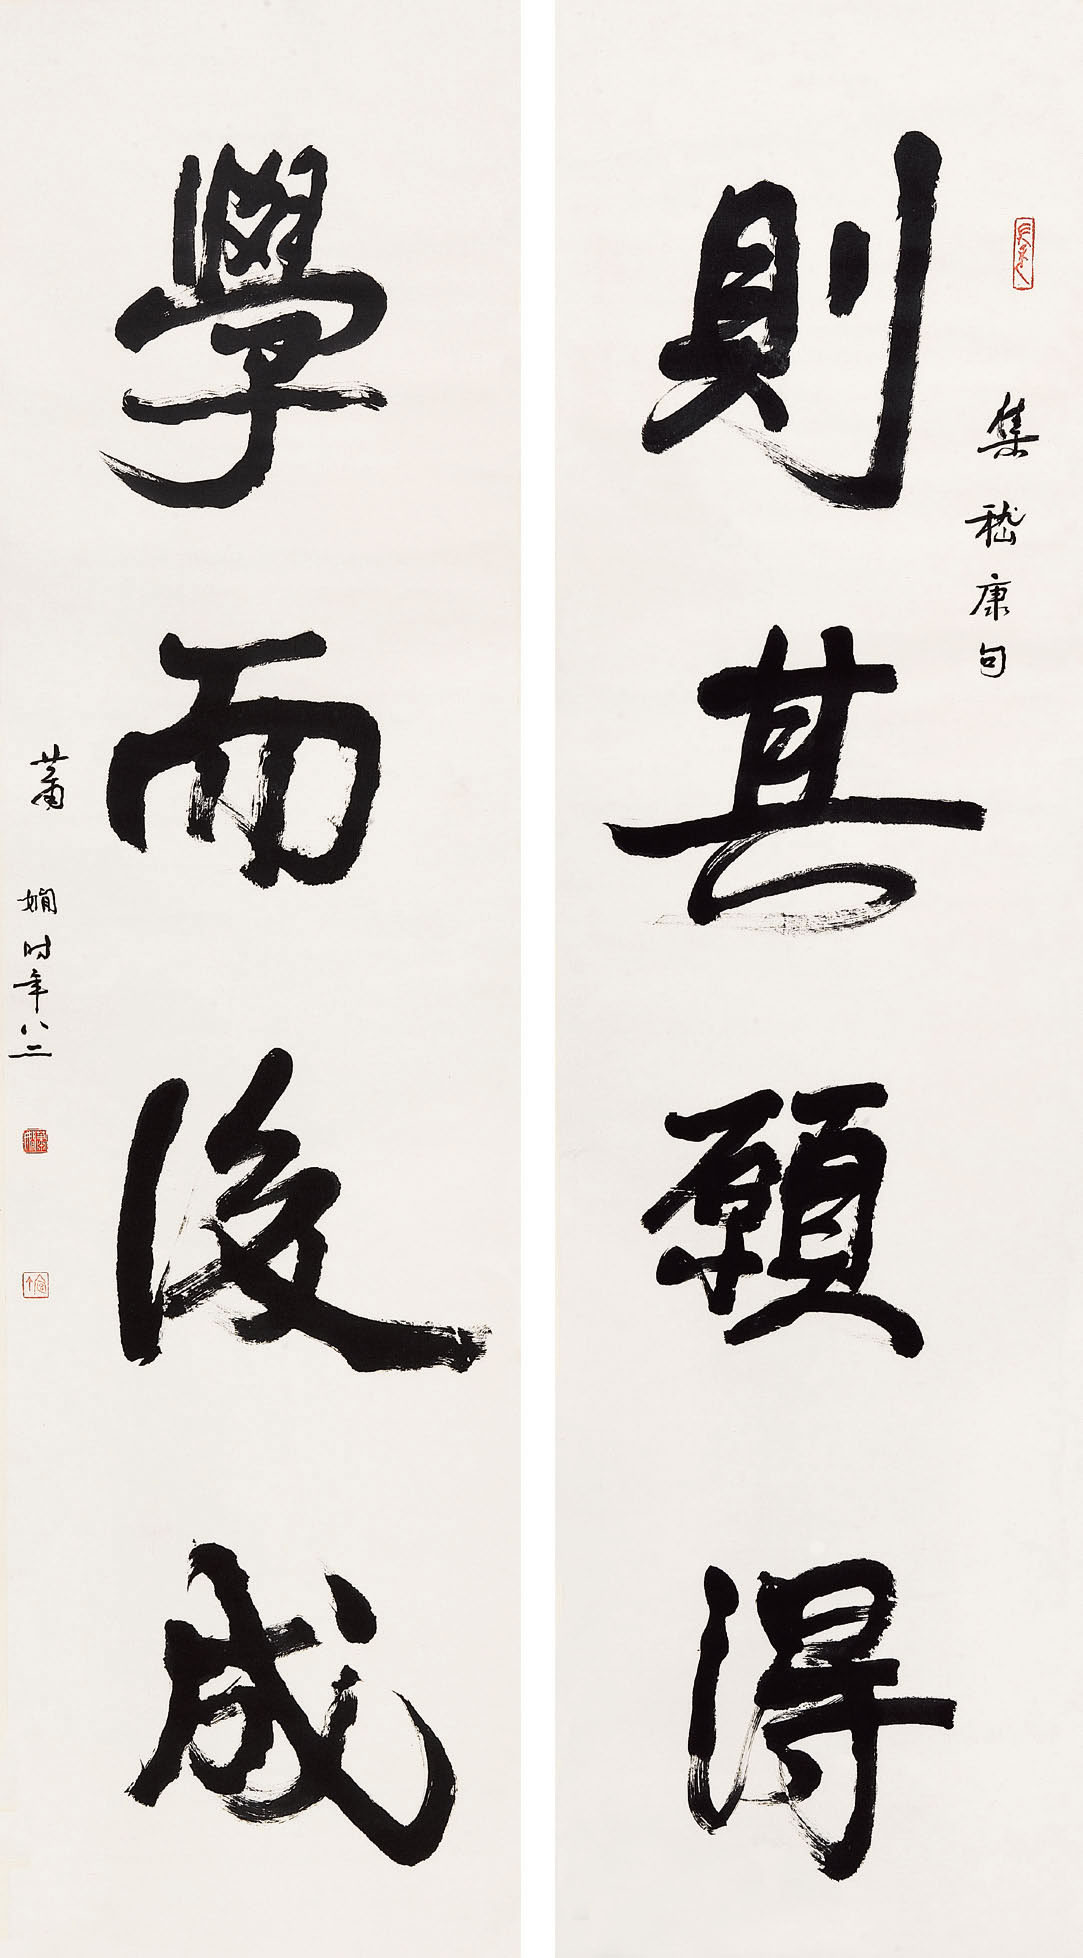 集嵇康句
則其願得
學而後成
蕭嫻时年八二